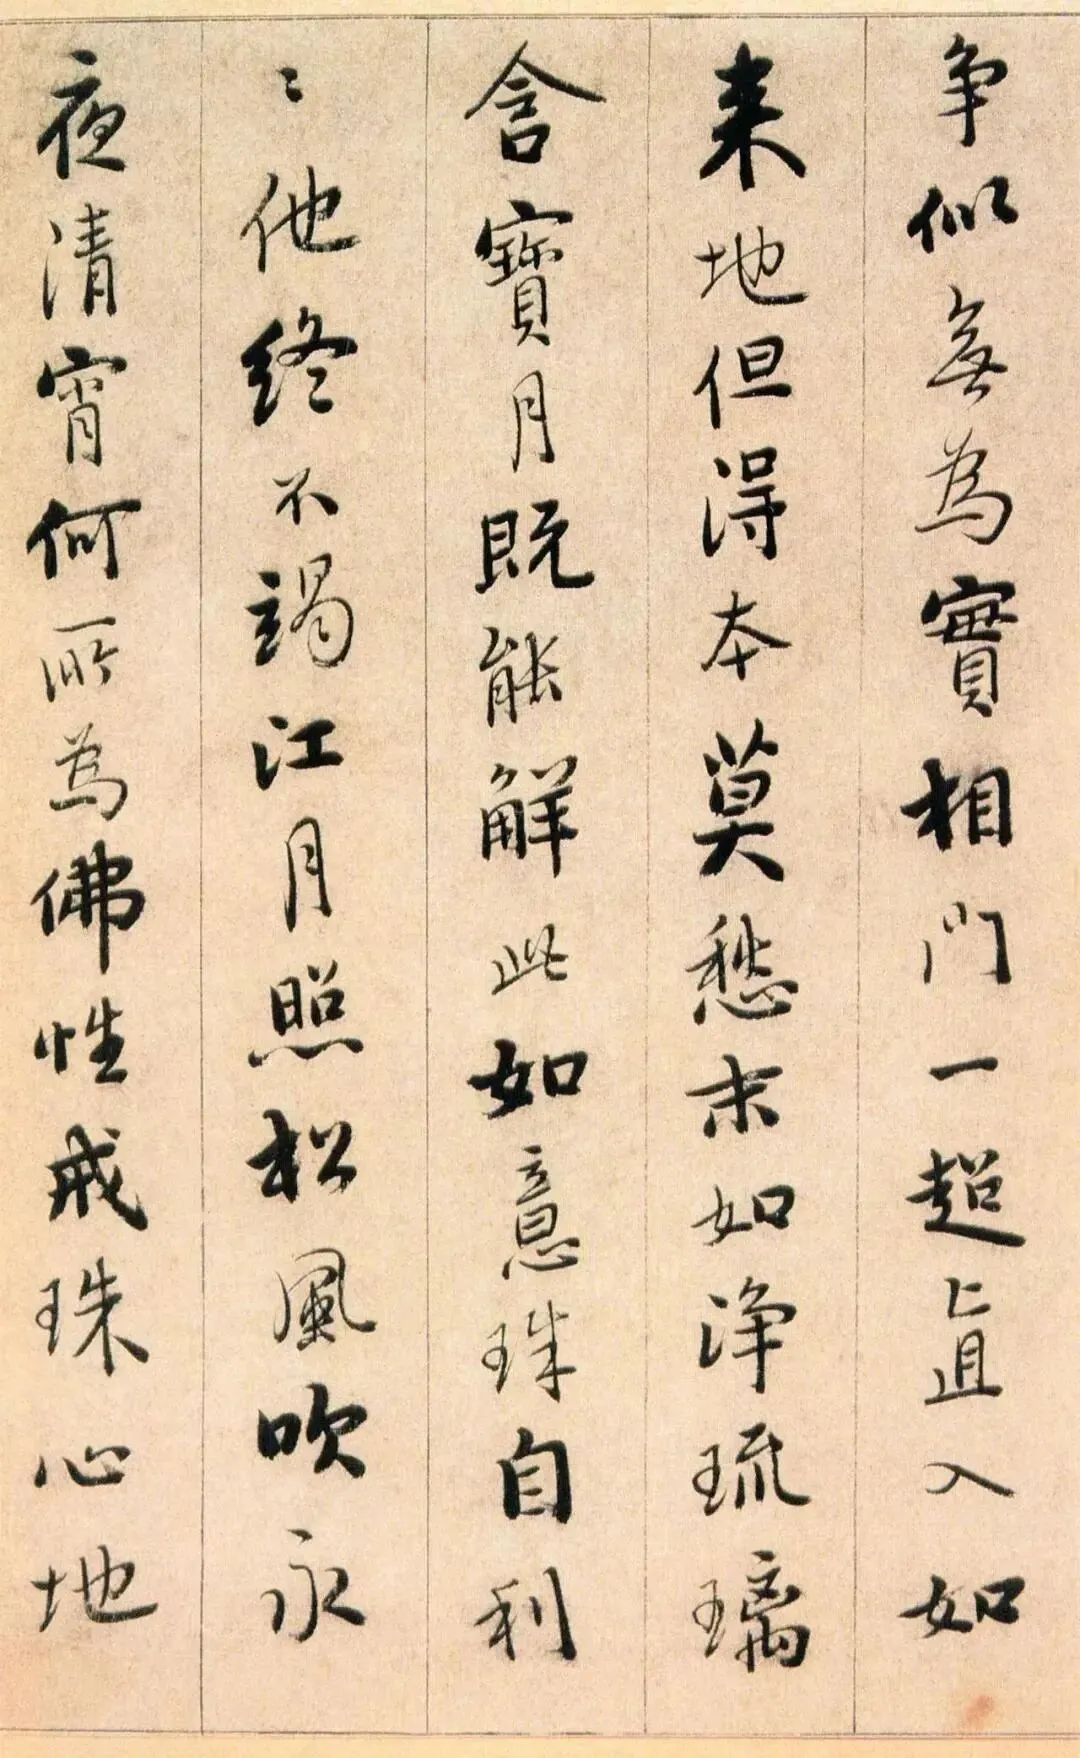 争似無為實相門一超直入如
来地但得本莫愁末如淨琉璃
含寶月既能解此如意珠自利
〻他終不竭江月照松風吹永
夜清宵何所為佛性戒珠心地